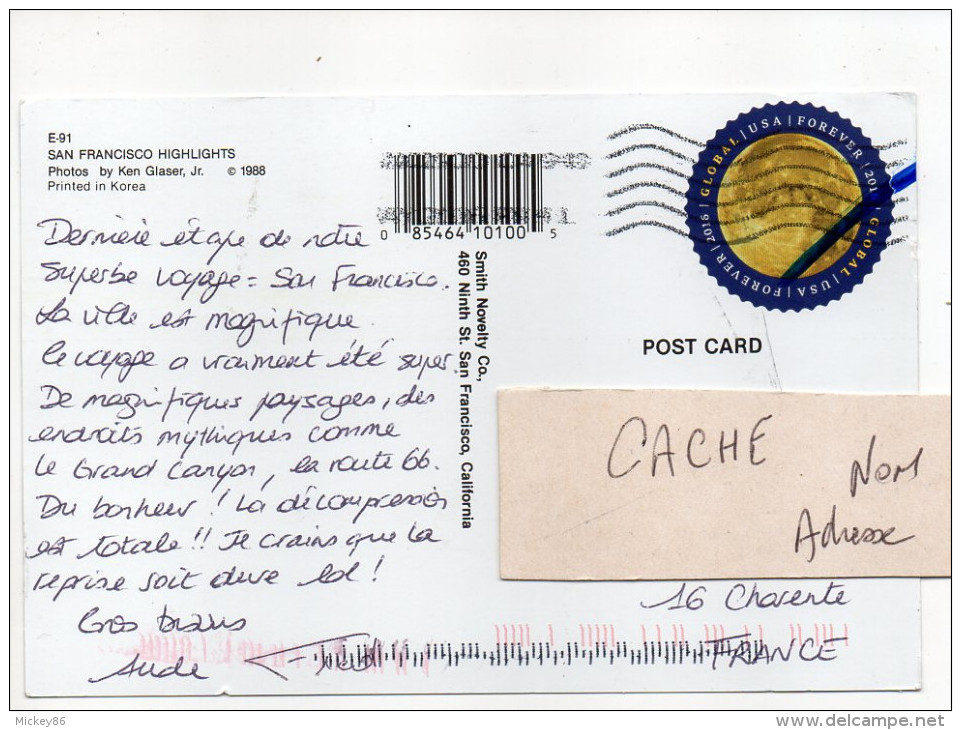 E-91
SAN FRANCISCO HIGHLIGHTS
Photos by Ken Glaser, Jr. © 1988
Printed in Korea
Dernière étape de notre
superbe voyage = San Francisco.
La ville est magnifique.
Le voyage a vraiment été super.
De magnifiques paysages, des
endroits mythiques comme
le Grand Canyon, la route 66.
Du bonheur ! La décompression
est totale !! Je crains que la
reprise soit dure lol !
Gros bisous
Aude
0 85464 10100 5
Smith Novelty Co.,
460 Ninth St. San Francisco, California
GLOBAL | USA | FOREVER / 201 | GLOBAL | USA | FOREVER / 2016 |
POST CARD
CACHE
Nom
Adresse
16 Charente
FRANCE
Mickey86
delcampe.net